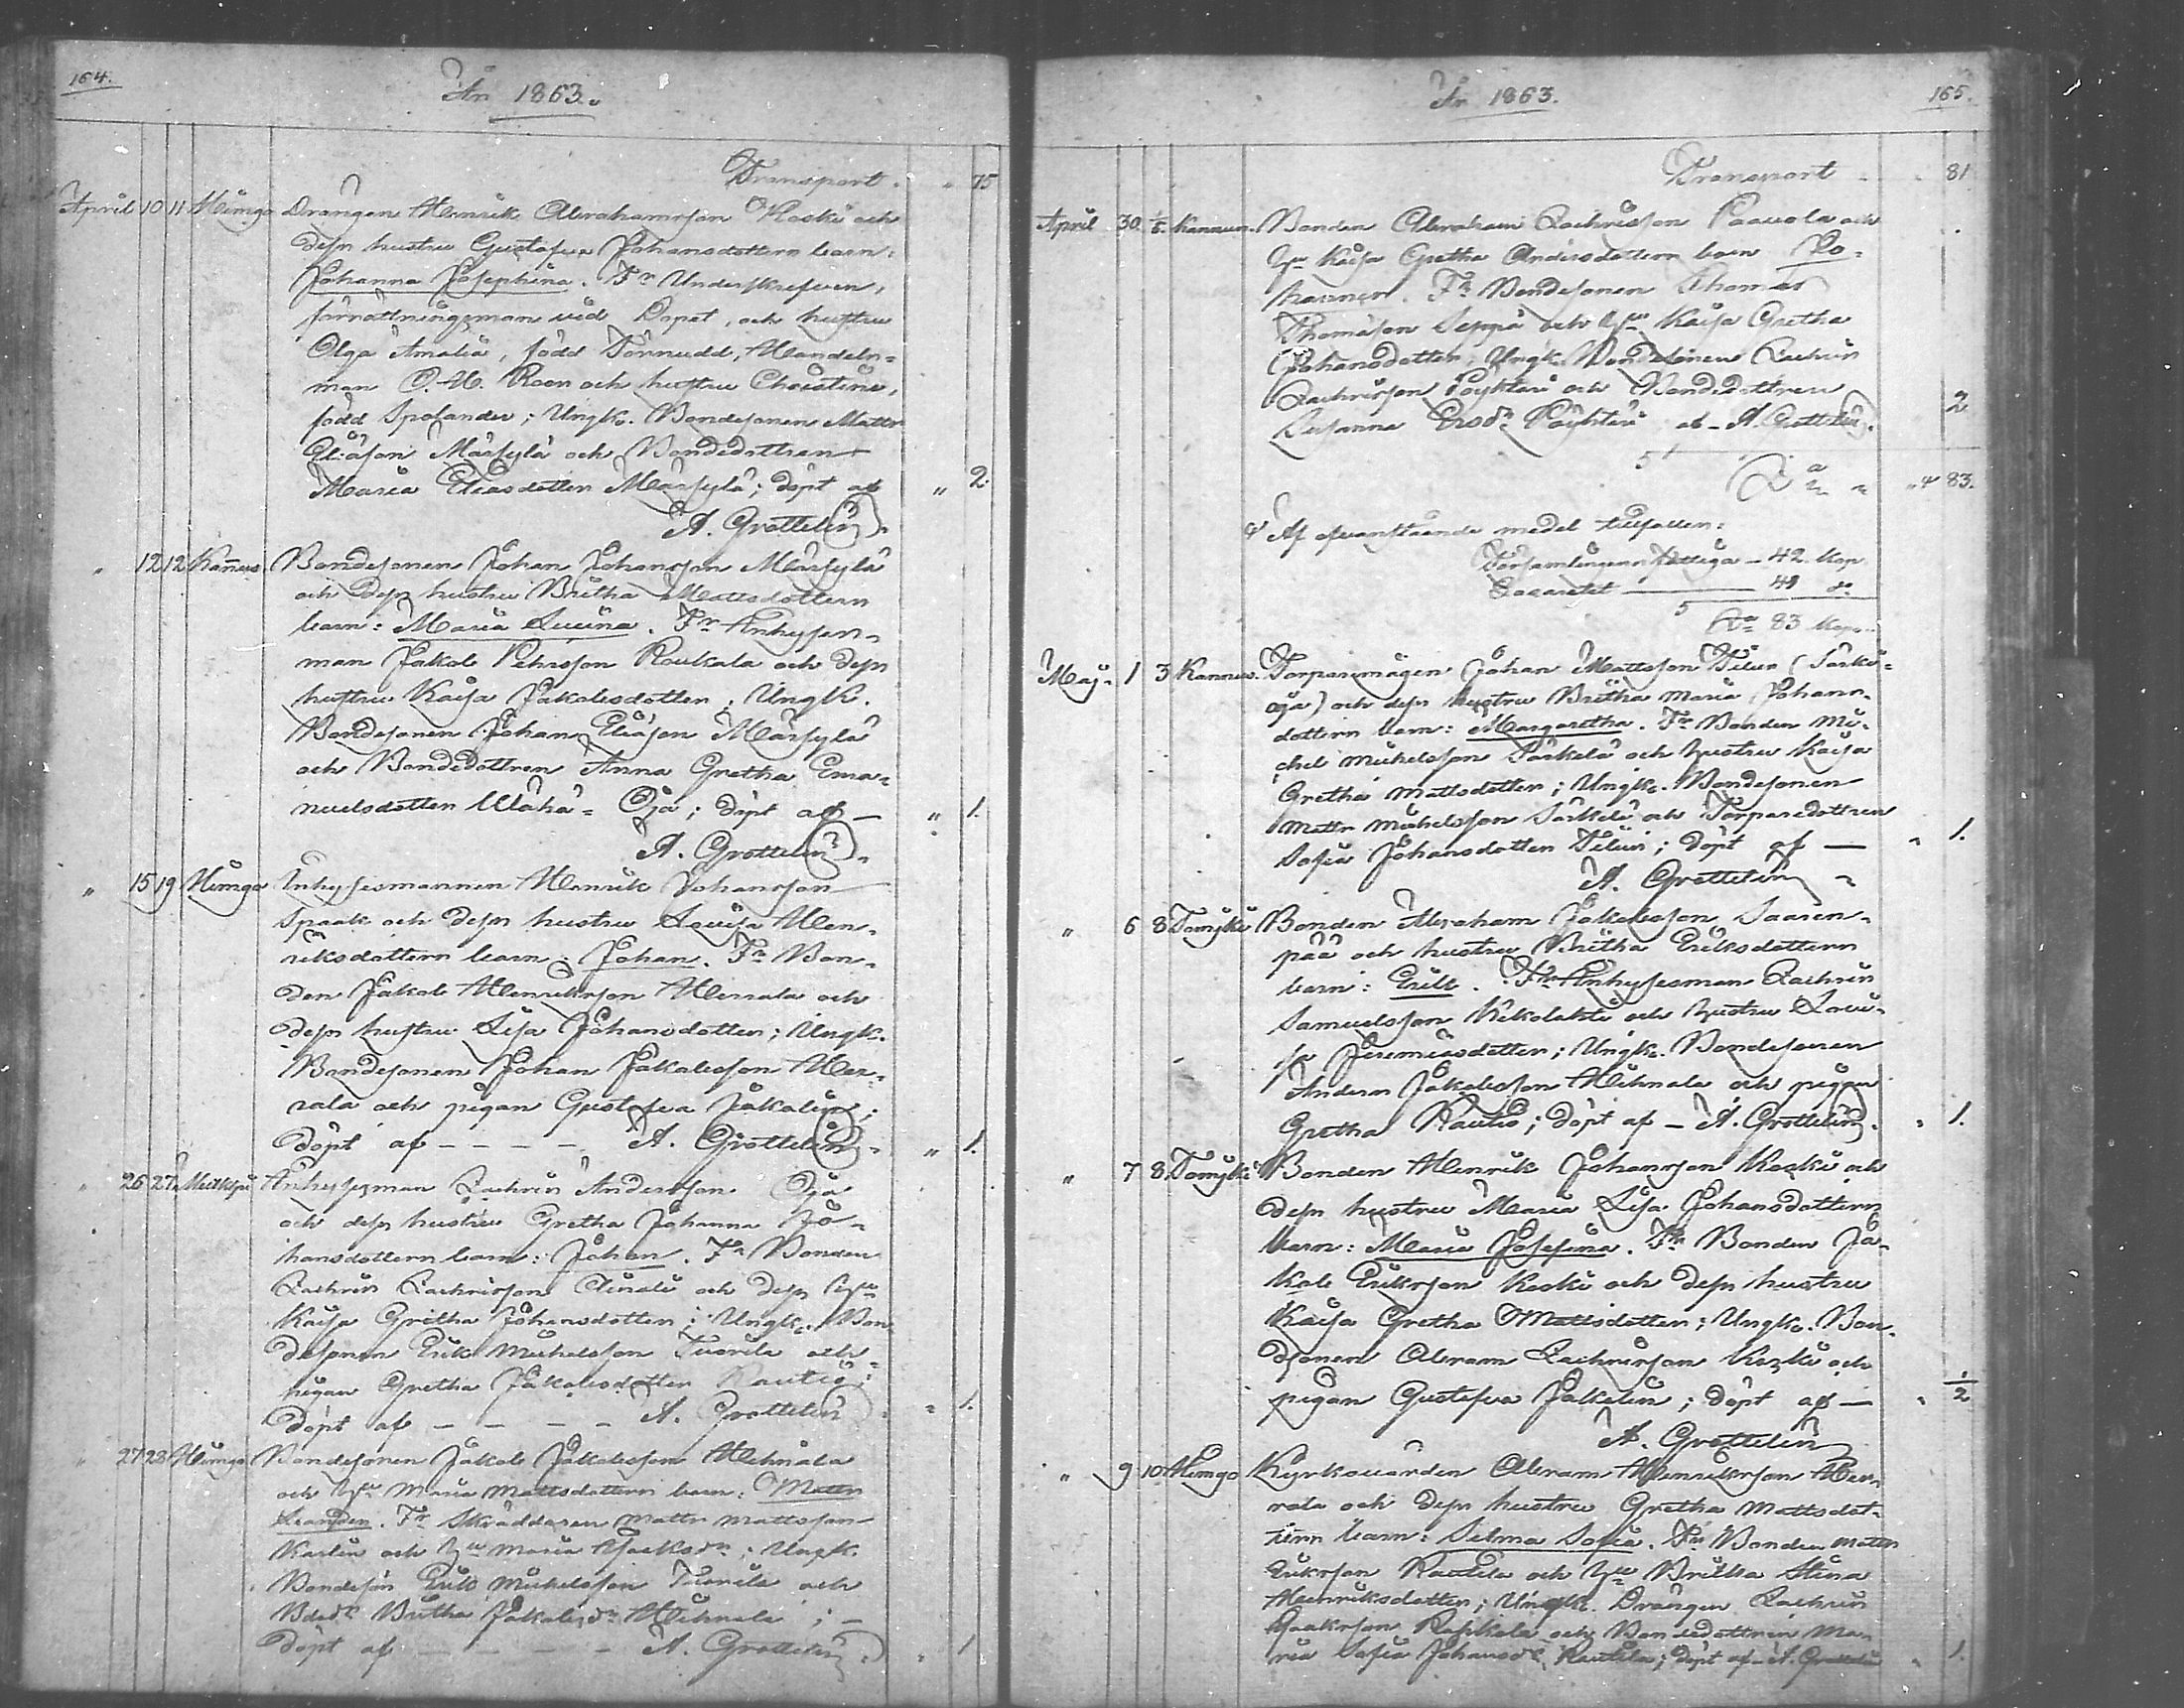 164.
År 1863.
Transport. " 75
April 10 11 Himgo Drängen Henrik Abrahamsson Koski och
dess hustru Gustafva Johansdotters barn:
Johanna Josephina. Fr Underskrefven,
förrättningsman vid Dopet, och hustru
Olga Amalia, född Törnudd, Handels-
man C. H. Roos och hustru Christina,
född Spolander; Ungk. Bondesonen Matts
Eliason Märsylä och Bondedottren
Maria Eliasdotter Märsylä; döpt af " 2.
A. Grottelin.
" 12 12 Kannus Bondesonen Johan Johansson Märsylä
och dess hustru Britha Mattsdotters
barn: Maria Lucina. Fr Inhyses-
man Jakob Pehrsson Raukala och dess
hustru Kaisa Jakobsdotter; Ungk.
Bondesonen Johan Eliason Märsylä
och Bondedottren Anna Gretha Ema-
nuelsdotter Wähä-Oja; döpt af — " 1.
A. Grottelin.
" 15 19 Himgo Inhysesmannen Henrik Johansson
Spaak och dess hustru Lovisa Hen-
riksdotters barn: Johan. Fr Bon-
den Jakob Henriksson Herrala och
dess hustru Lisa Johansdotter; Ungk.
Bondesonen Johan Jakobsson Her-
rala och pigan Gustafva Jakalin;
döpt af - - - - A. Grottelin. " 1.
" 26 27 Inhysesman Zachris Andersson Oja
och dess hustru Gretha Johanna Jo-
hansdotters barn: Johan. Fr Bonden
Zachris Zachrisson Ainali och dess hu
Kaisa Gretha Johansdotter; Ungk. Bon-
desonen Erik Mickelsson Tuorila och
pigan Gretha Jakobsdotter Rautio;
döpt af — — — — A. Grottelin " 1.
" 27 28 Himgo Bondesonen Jakob Jakobsson Hihnala
och hu Maria Mattsdotters barn: Matts
Leander. Fr Skräddaren Matts Mattsson
Karlin och hu Maria Isaksdr; Ungk.
Bondeson Erik Mickelsson Tuorila och
Bdedr Britha Jakobsdr Hihnala; -
döpt af — — — A. Grottelin. " 1
År 1863.
165.
Transport - 81
April 30 1/5. Kannus. Bonden Abraham Zachrisson Paavola och
hu Kaisa Gretha Andersdotters barn Jo-
hannes. Fr Bondesonen Thomas
Thomasson Seppä och hu Kaisa Gretha
Johansdotter; Ungk. Bondesonen Zachris
Zachrisson Pöyhtäri och Bondedottren
Susanna Ersdr Pöyhtäri af - A. Grottelin. 2
Sa " 83.
Af ofvanstående medel tillfaller:
Församlingens fattiga — 42 Kop
Lazarettet — 41 do
Sa 83 Kop.
Maj. 1 3 Kannus. Torparemågen Johan Mattsson Tilus (Särki-
oja) och dess hustru Britha Maria Johans-
dotters barn: Margaretha. Fr Bonden Mi-
chel Mickelsson Särkelä och hustru Kaisa
Gretha Mattsdotter; Ungk. Bondesonen
Matts Mickelsson Särkelä och Torparedottren
Sofia Johansdotter Tilus; döpt af — " 1.
A. Grottelin "
" 6 8 Tomujki Bonden Abraham Jakobsson Saaren-
pää och hustru Britha Eriksdotters
barn: Erik. Fr Inhysesman Zachris
Samuelsson Kekolahti och hustru Lovi-
sa Jeremiasdotter; Ungk. Bondesonen
Anders Jakobsson Hihnala och pigan
Gretha Rautio; döpt af - A. Grottelin. " 1.
" 7 8 Tomujki Bonden Henrik Johansson Koski och
dess hustru Maria Lisa Johansdotters
barn: Maria Josefina. Fr Bonden Ja-
kob Eriksson Koski och dess hustru
Kaisa Gretha Mattsdotter; Ungk. Bon-
dsonen Abram Zachrisson Koski och
pigan Gustafva Jakalin; döpt af — " 1/2
A. Grottelin
" 9 10 Himgo Kyrkovärden Abram Henriksson Her-
rala och dess hustru Gretha Mattsdot-
ters barn: Selma Sofia. Fr Bonden Matts
Eriksson Rautila och hu Britha Stina
Henriksdotter; Ungk. Drängen Zachris
Isaksson Raskala och Bondedottren Ma-
ria Sofia Johansdr Rautila; döpt af - A. Grottelin " 1.